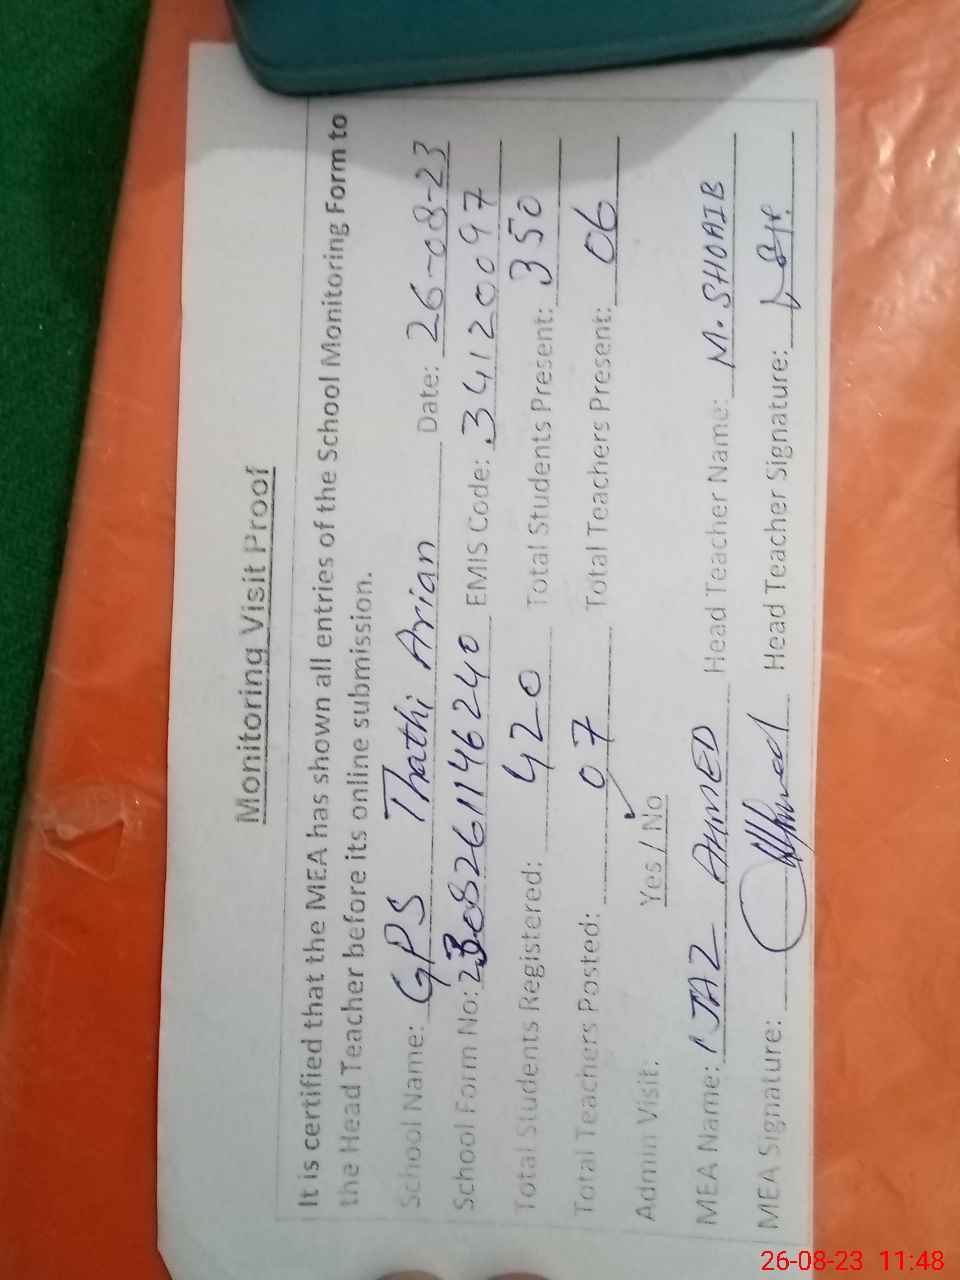 Monitoring Visit Proof
It is certified that the MEA has shown all entries of the School Monitoring Form to
the Head Teacher before its online submission.
School Name: GPS Thathi Arian Date: 26-08-23
School Form No: 2308261146240 EMIS Code: 34120097
Total Students Registered: 420 Total Students Present: 350
Total Teachers Posted: 07 Total Teachers Present: 06
Admin Visit: Yes / No
MEA Name: AHMED Head Teacher Name: M. SHOAIB
MEA Signature: Head Teacher Signature:
26-08-23 11:48